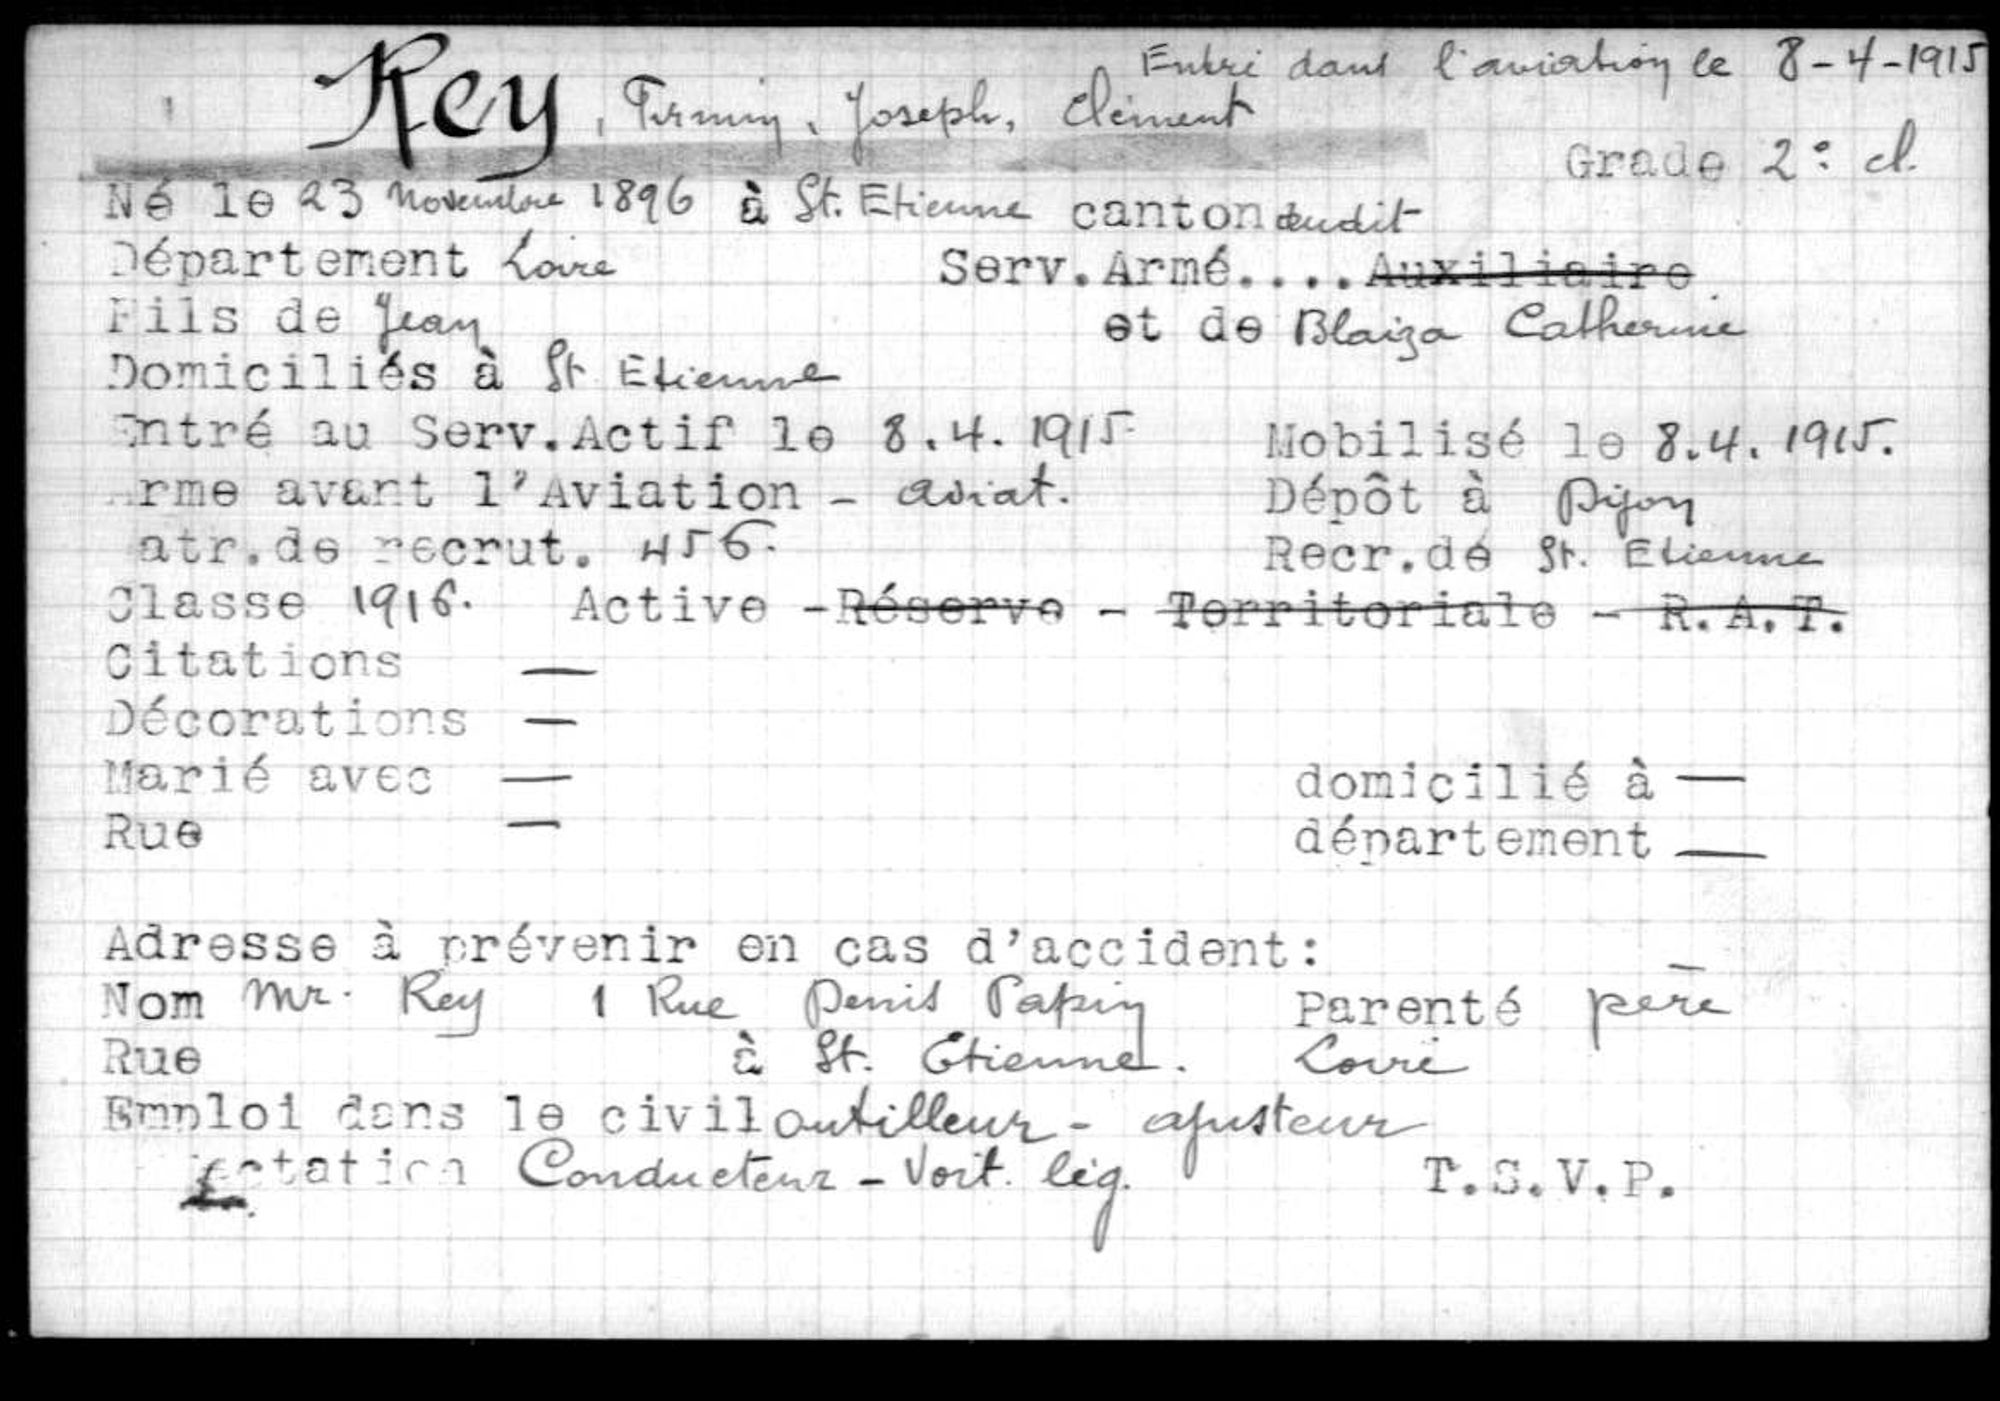 Entré dans l'aviation le 8-4-1915
Rey, Firmin, Joseph, Clément
Grade 2e cl.
Né le 23 Novembre 1896 à St. Etienne canton dudit
Département Loire Serv. Armé.... Auxiliaire
Fils de Jean et de Blaiza Catherine
Domiciliés à St Etienne
Entré au Serv. Actif le 8.4.1915 Mobilisé le 8.4.1915.
Arme avant l'Aviation - aviat. Dépôt à Dijon
atr. de recrut. 456. Recr. de St. Etienne
Classe 1916. Active - Réserve - Territoriale - R.A.T.
Citations —
Décorations —
Marié avec — domicilié à —
Rue — département —
Adresse à prévenir en cas d'accident: —
Nom Mr. Rey 1 Rue Denis Papin Parenté père
Rue à St. Etienne. Loire
Emploi dans le civil outilleur - ajusteur
Conducteur - Voit. lég. T.S.V.P.